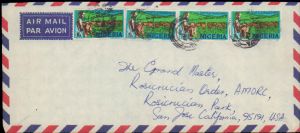 AIR MAIL
PAR AVION
NIGERIA
NIGERIA
NIGERIA
NIGERIA
The Grand Master,
Rosicrucian Order, AMORC,
Rosicrucian Park,
San Jose California, 95191, USA